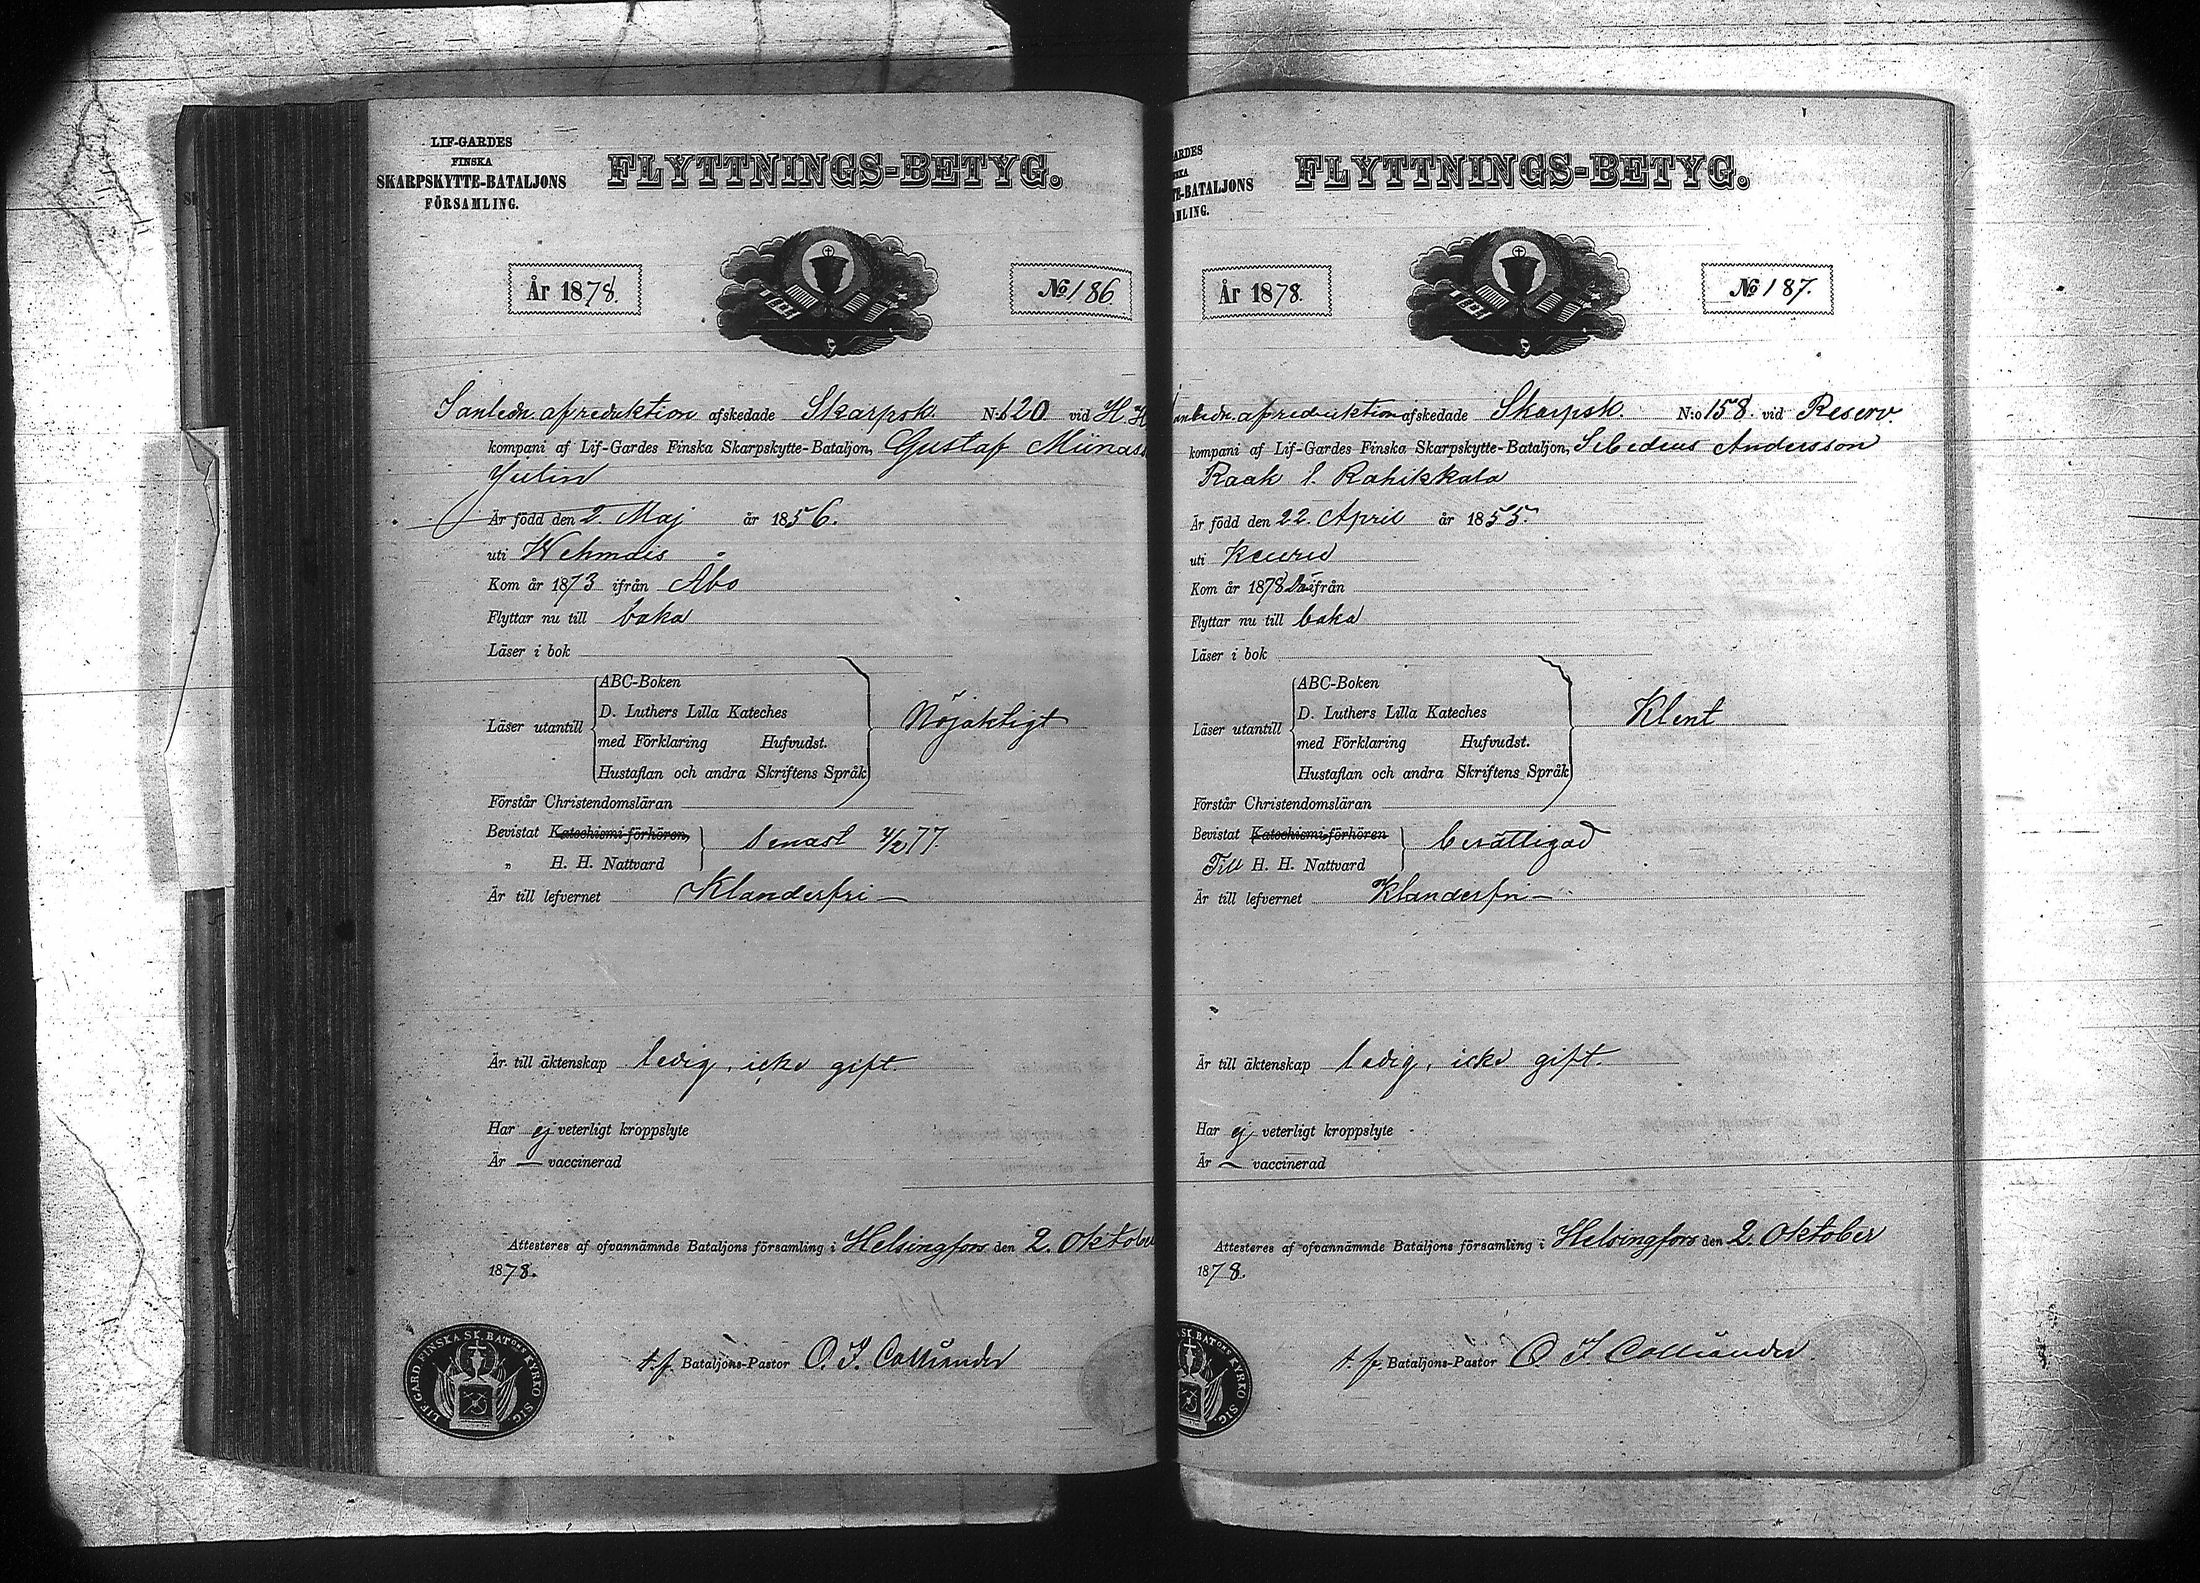 LIF-GARDES
FINSKA
SKARPSKYTTE-BATALJONS
FÖRSAMLING.
FLYTTNINGS-BETYG.
År 1878.
No 186
I anledn. af reduktion afskedade Skarpsk. N:o 120 vid H. H
kompani af Lif-Gardes Finska Skarpskytte-Bataljon, Gustaf
Julin
Är född den 2. Maj år 1856.
uti Wehmais
Kom år 1873 ifrån Åbo
Flyttar nu till baka
Läser i bok
Läser utantill
ABC-Boken
D. Luthers Lilla Kateches
med Förklaring Hufvudst.
Hustaflan och andra Skriftens Språk
Nöjaktigt
Förstår Christendomsläran
Bevistat Katechismi-förhören,
" H. H. Nattvard
senast 4/2 77.
Är till lefvernet Klanderfri —
Är till äktenskap ledig, icke gift.
Har ej veterligt kroppslyte
Är — vaccinerad
Attesteras af ofvannämnde Bataljons församling i Helsingfors den 2. Oktober
1878.
t. f. Bataljons-Pastor O. I. Colliander
LIF. GARD. FINSKA SK. BATONS KYRKO SIG.
ARDES
SKA
TE-BATALJONS
MLING.
FLYTTNINGS-BETYG.
År 1878.
No 187.
anledn. af reduktion afskedade Skarpsk. N:o 158. vid Reserv.
kompani af Lif-Gardes Finska Skarpskytte-Bataljon, Sebedeus Andersson
Raak l. Rahikkala
Är född den 22. April år 1855.
uti Keuru
Kom år 1878 ifrån
Flyttar nu till baka
Läser i bok
Läser utantill
ABC-Boken
D. Luthers Lilla Kateches
med Förklaring Hufvudst.
Hustaflan och andra Skriftens Språk
Klent
Förstår Christendomsläran
Bevistat Katechismi-förhören
Till H. H. Nattvard
berättigad
Är till lefvernet Klanderfri —
Är till äktenskap ledig, icke gift.
Har ej veterligt kroppslyte
Är — vaccinerad
Attesteras af ofvannämnde Bataljons församling i Helsingfors den 2. Oktober
1878.
t. f. Bataljons-Pastor O. I. Colliander
SK. BATONS KYRKO SIG.